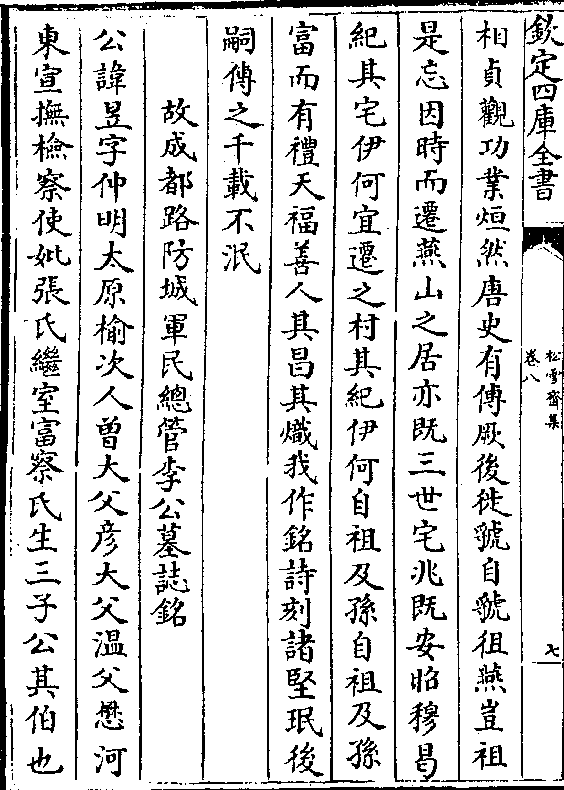 欽定四庫全書
松雪齋集
卷八
七
相貞觀功業烜然唐史有傳厥後徙虢自虢徂燕豈祖
是忘因時而遷燕山之居亦既三世宅兆既安昭穆曷
紀其宅伊何宜遷之村其紀伊何自祖及孫自祖及孫
富而有禮天福善人其昌其熾我作銘詩刻諸堅珉後
嗣傳之千載不泯
故成都路防城軍民總管李公墓誌銘
公諱昱字仲明太原榆次人曾大父彦大父溫父懋河
東宣撫檢察使妣張氏繼室富察氏生三子公其伯也